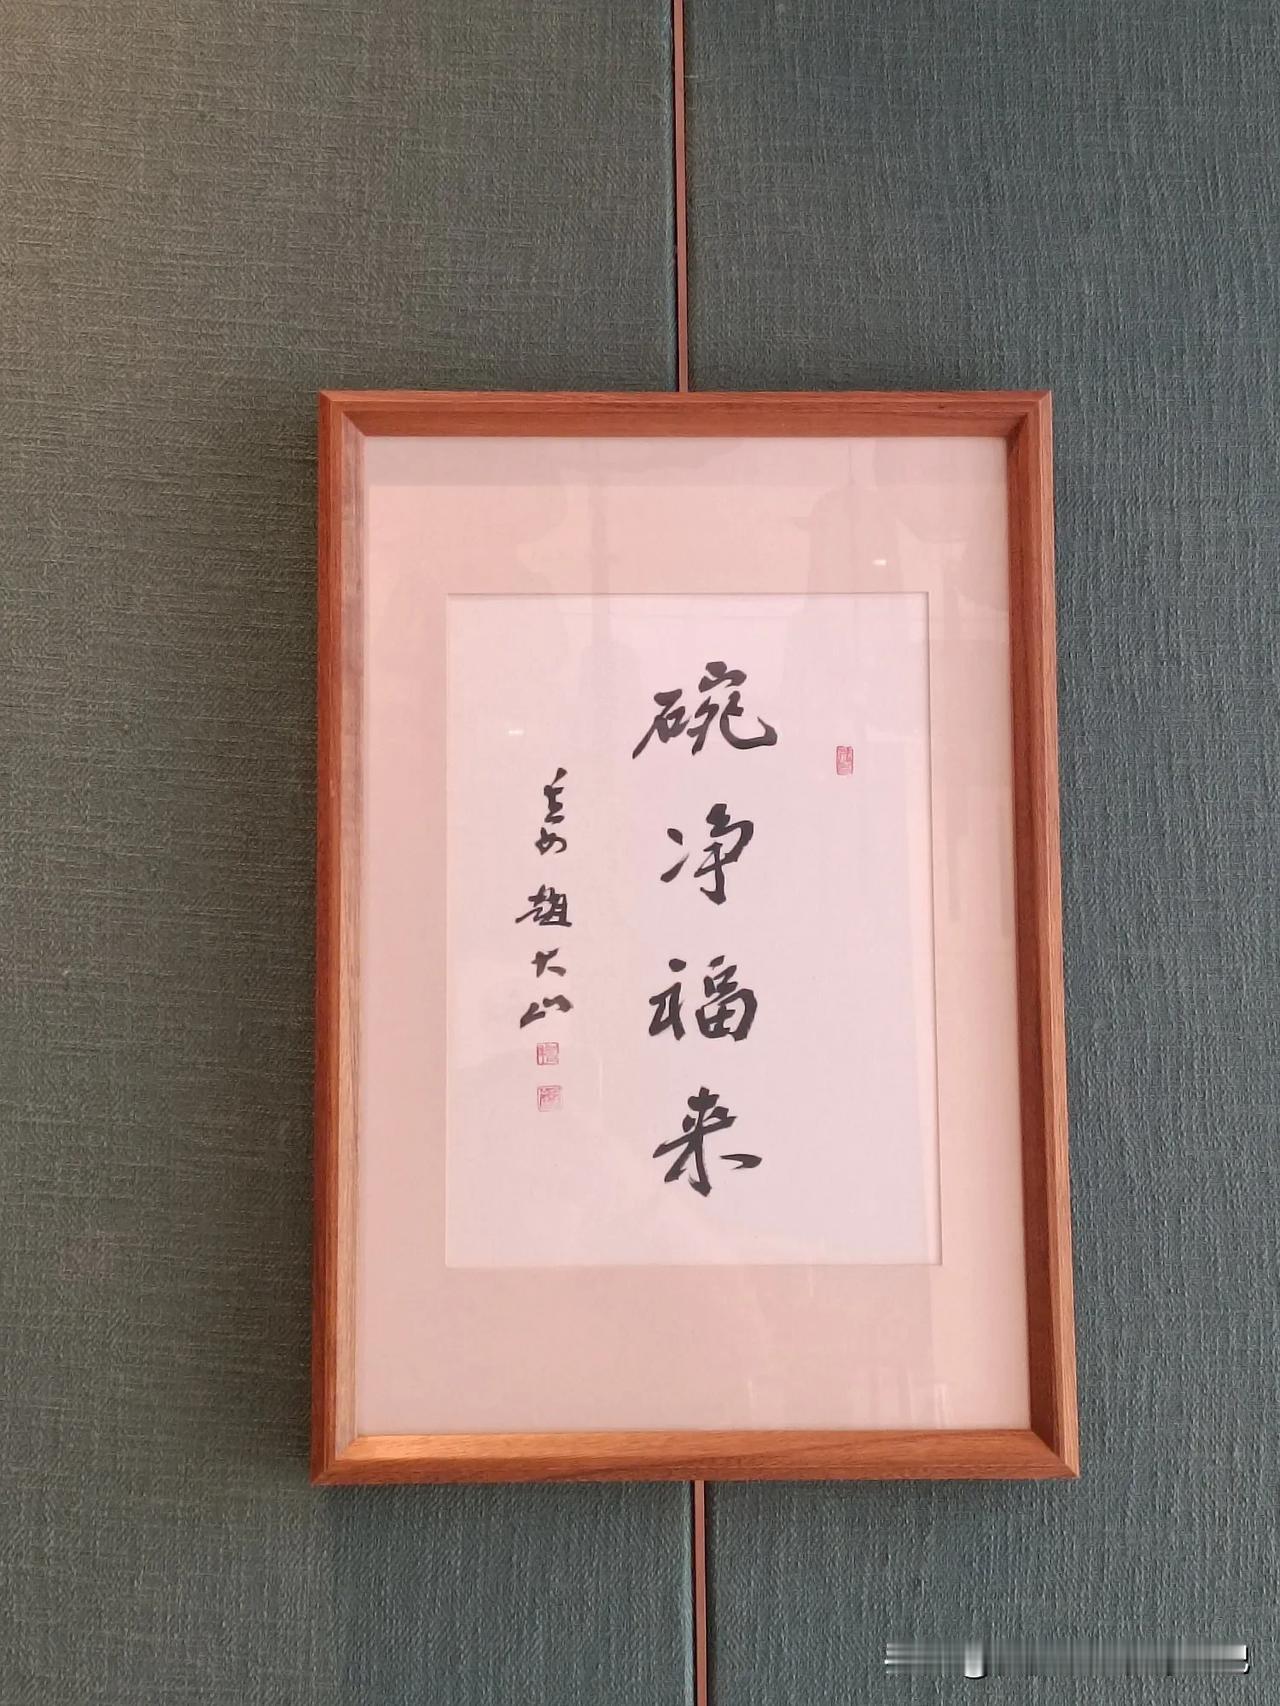 碗净福来
赵大山